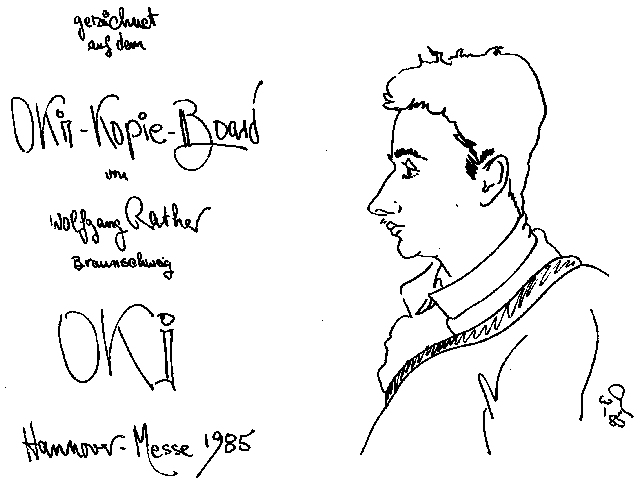 gezeichnet
auf dem
OKi-Kopie-Board
von
Wolfgang Rather
Braunschweig
OKi
Hannover-Messe 1985